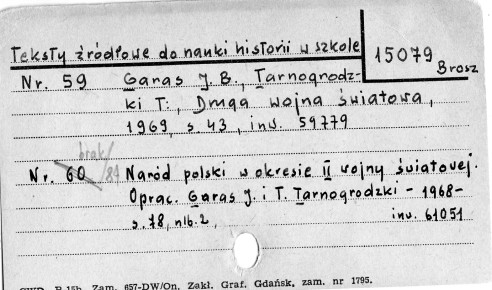 Teksty źródłowe do nauki historii w szkole
15079
Brosz
Nr. 59 Garas J. B., Tarnogrodz-
ki T., Druga wojna światowa,
1969, s. 43, inw. 59779
brak/84
Nr. 60 Naród polski w okresie II wojny światowej.
Oprac. Garas J. i T. Tarnogrodzki - 1968 -
s. 78, nlb. 2, inw. 61051
P-15b. Zam. 657-DW/On. Zakł. Graf. Gdańsk, zam. nr 1795.